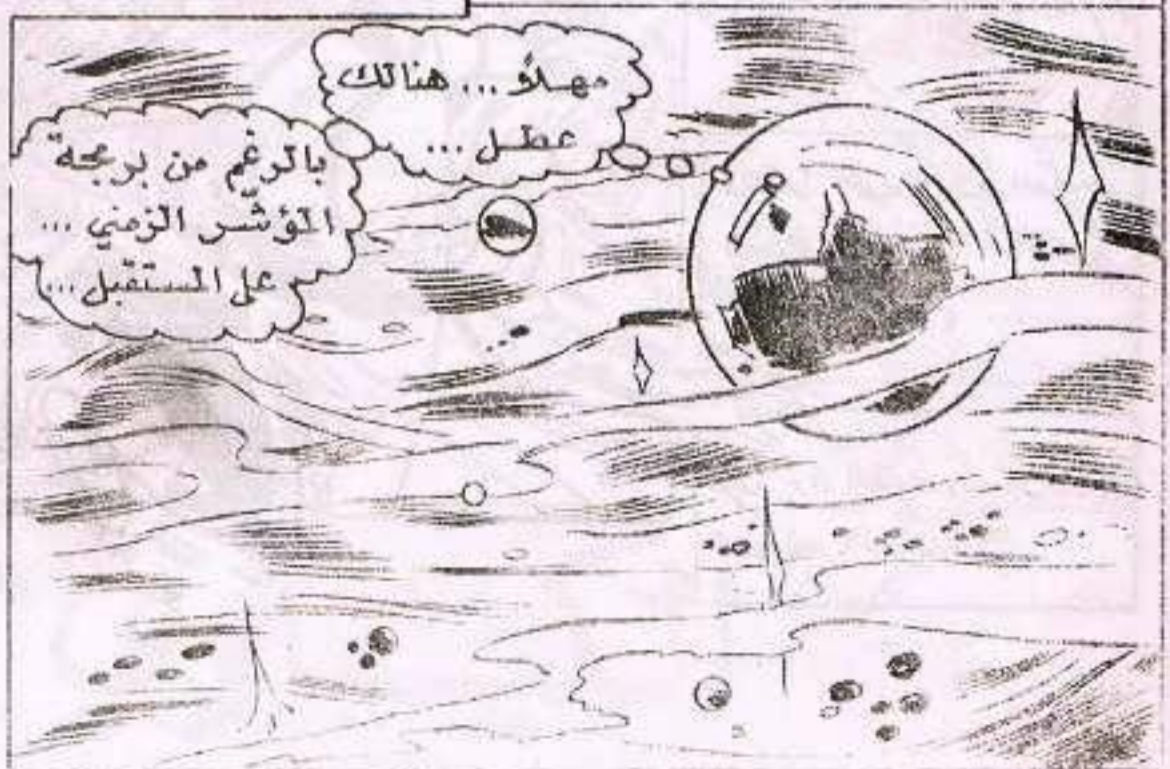 مهلاً... هنالك
عطل...
بالرغم من برمجة
المؤشّر الزمني...
على المستقبل...